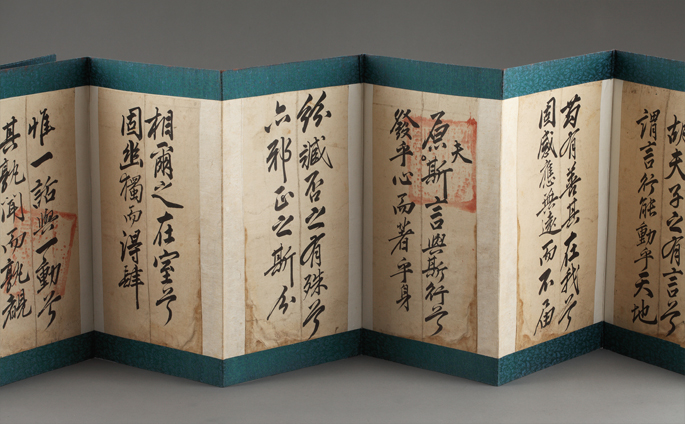 胡夫子之有言兮
謂言行能動乎天地
苟有善其在我兮
固感應無遠而不届
原夫斯言與斯行兮
發乎心而著乎身
紛臧否之有殊兮
亦邪正之斯分
相爾之在室兮
固幽獨而得肆
惟一話與一動兮
其孰聞而孰覩